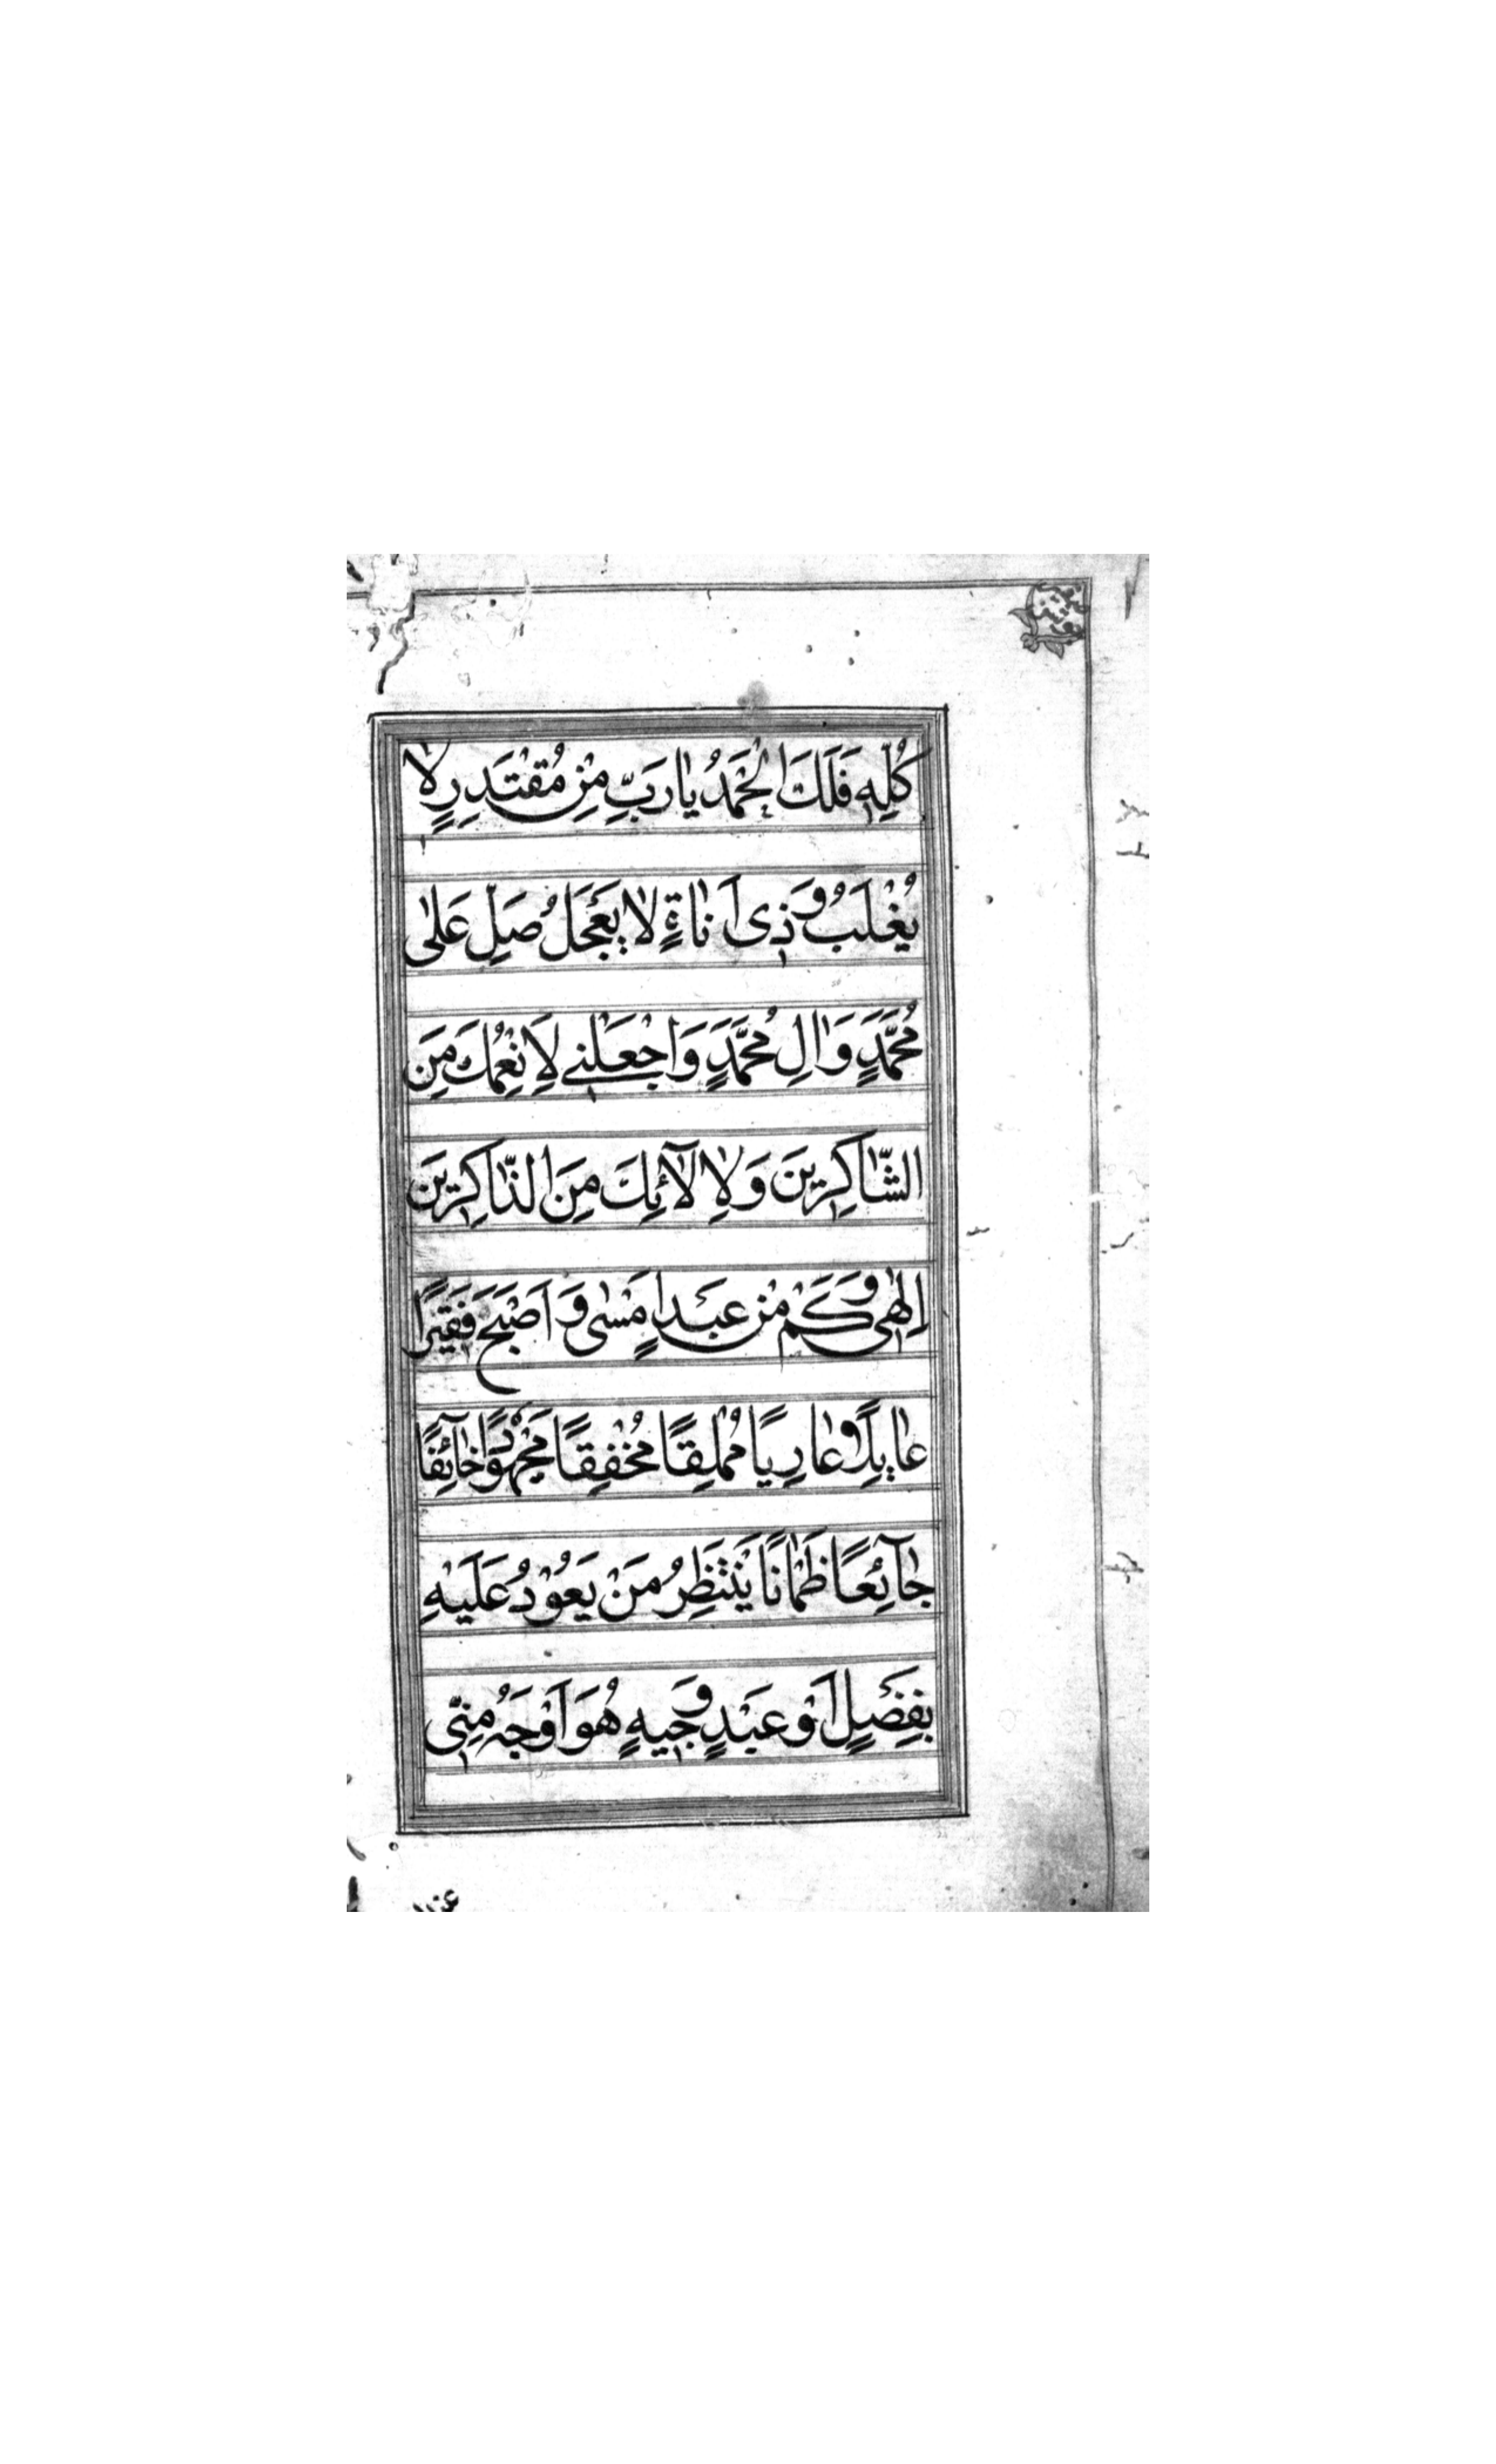 كُلِّهِ فَلَكَ الْحَمْدُ يا رَبِّ مِنْ مُقْتَدِرٍ لا
يُغْلَبُ وَذِى اَناةٍ لا يَعْجَلُ صَلِّ عَلى
مُحَمَّدٍ وَالِ مُحَمَّدٍ وَاجْعَلْنى لِاَنْعُمِكَ مِنَ
الشّاكِرينَ وَلِالآئِكَ مِنَ الذّاكِرينَ
اِلهى وَكَمْ مِنْ عَبْدٍ اَمْسى وَ اَصْبَحَ فَقيرًا
عايِلًا وَعارِيًا مُمْلِقًا مُخْفِقًا مَجْهُودًا خآئِفًا
جآئِعًا ظَمْانًا يَنْتَظِرُ مَنْ يَعُوْدُ عَلَيْهِ
بِفَضْلٍ اَوْ عَبْدٍ وَجيهٍ هُوَ اَوْجَهُ مِنّى